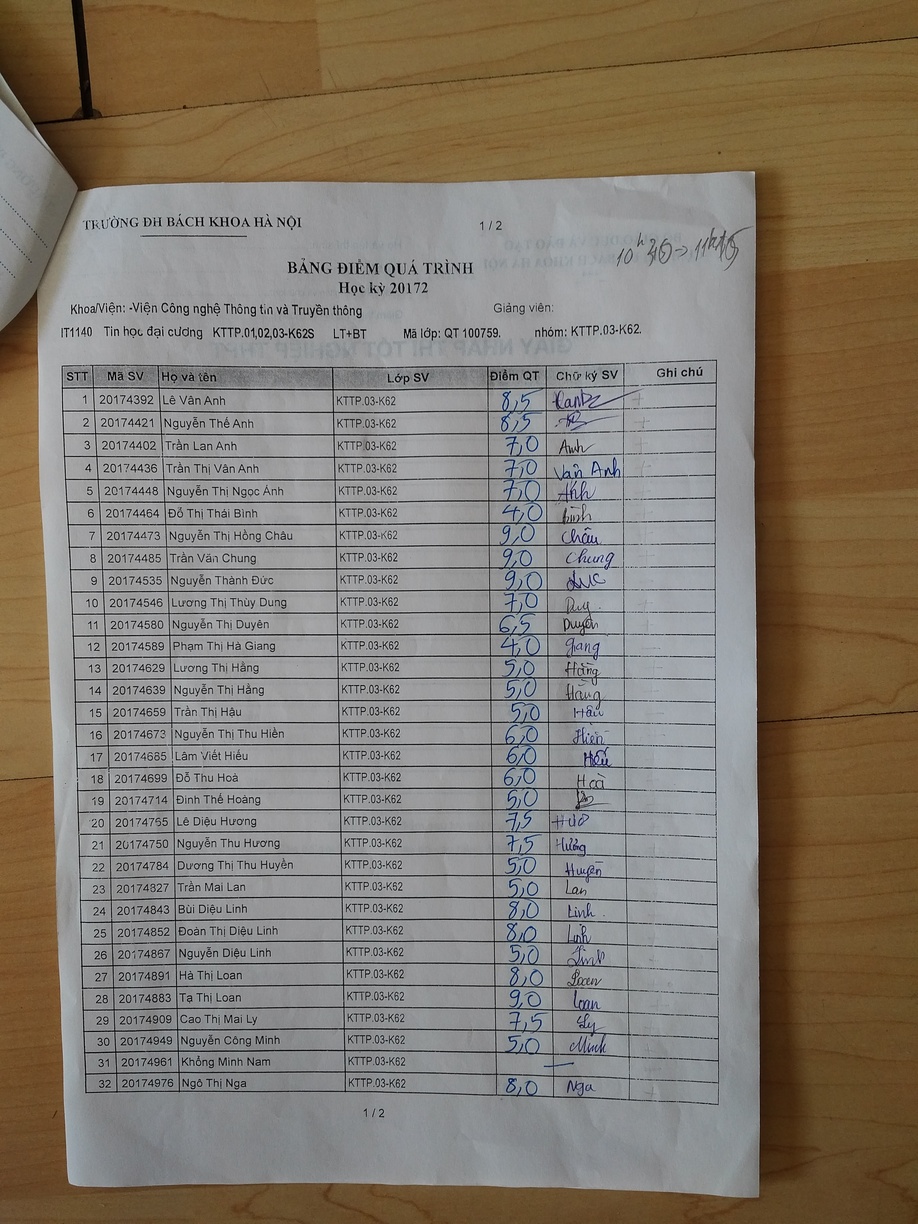 TRƯỜNG ĐH BÁCH KHOA HÀ NỘI 1 / 2
BẢNG ĐIỂM QUÁ TRÌNH
Học kỳ 20172
Khoa/Viện: -Viện Công nghệ Thông tin và Truyền thông Giảng viên:
IT1140 Tin học đại cương KTTP.01,02,03-K62S LT+BT Mã lớp: QT 100759. nhóm: KTTP.03-K62.
STT Mã SV Họ và tên Lớp SV Điểm QT Chữ ký SV Ghi chú
1 20174392 Lê Vân Anh KTTP.03-K62 8,5
2 20174421 Nguyễn Thế Anh KTTP.03-K62 8,5
3 20174402 Trần Lan Anh KTTP.03-K62 7,0 Anh
4 20174436 Trần Thị Vân Anh KTTP.03-K62 7,0 Vân Anh
5 20174448 Nguyễn Thị Ngọc Ánh KTTP.03-K62 7,0 Ánh
6 20174464 Đỗ Thị Thái Bình KTTP.03-K62 4,0 Bình
7 20174473 Nguyễn Thị Hồng Châu KTTP.03-K62 9,0 Châu
8 20174485 Trần Văn Chung KTTP.03-K62 9,0 Chung
9 20174535 Nguyễn Thành Đức KTTP.03-K62 9,0 Đức
10 20174546 Lương Thị Thùy Dung KTTP.03-K62 7,0
11 20174580 Nguyễn Thị Duyên KTTP.03-K62 6,5 Duyên
12 20174589 Phạm Thị Hà Giang KTTP.03-K62 4,0 Giang
13 20174629 Lương Thị Hằng KTTP.03-K62 5,0 Hằng
14 20174639 Nguyễn Thị Hằng KTTP.03-K62 5,0 Hằng
15 20174659 Trần Thị Hậu KTTP.03-K62 5,0 Hậu
16 20174673 Nguyễn Thị Thu Hiền KTTP.03-K62 6,0 Hiền
17 20174685 Lâm Viết Hiếu KTTP.03-K62 6,0 Hiếu
18 20174699 Đỗ Thu Hoà KTTP.03-K62 6,0 Hoà
19 20174714 Đinh Thế Hoàng KTTP.03-K62 5,0
20 20174755 Lê Diệu Hương KTTP.03-K62 7,5
21 20174750 Nguyễn Thu Hương KTTP.03-K62 7,5 Hương
22 20174784 Dương Thị Thu Huyền KTTP.03-K62 5,0 Huyền
23 20174827 Trần Mai Lan KTTP.03-K62 5,0 Lan
24 20174843 Bùi Diệu Linh KTTP.03-K62 8,0 Linh
25 20174852 Đoàn Thị Diệu Linh KTTP.03-K62 8,0 Linh
26 20174867 Nguyễn Diệu Linh KTTP.03-K62 5,0 Linh
27 20174891 Hà Thị Loan KTTP.03-K62 8,0 Loan
28 20174883 Tạ Thị Loan KTTP.03-K62 9,0 Loan
29 20174909 Cao Thị Mai Ly KTTP.03-K62 7,5 Ly
30 20174949 Nguyễn Công Minh KTTP.03-K62 5,0 Minh
31 20174961 Khổng Minh Nam KTTP.03-K62 —
32 20174976 Ngô Thị Nga KTTP.03-K62 8,0 Nga
1 / 2